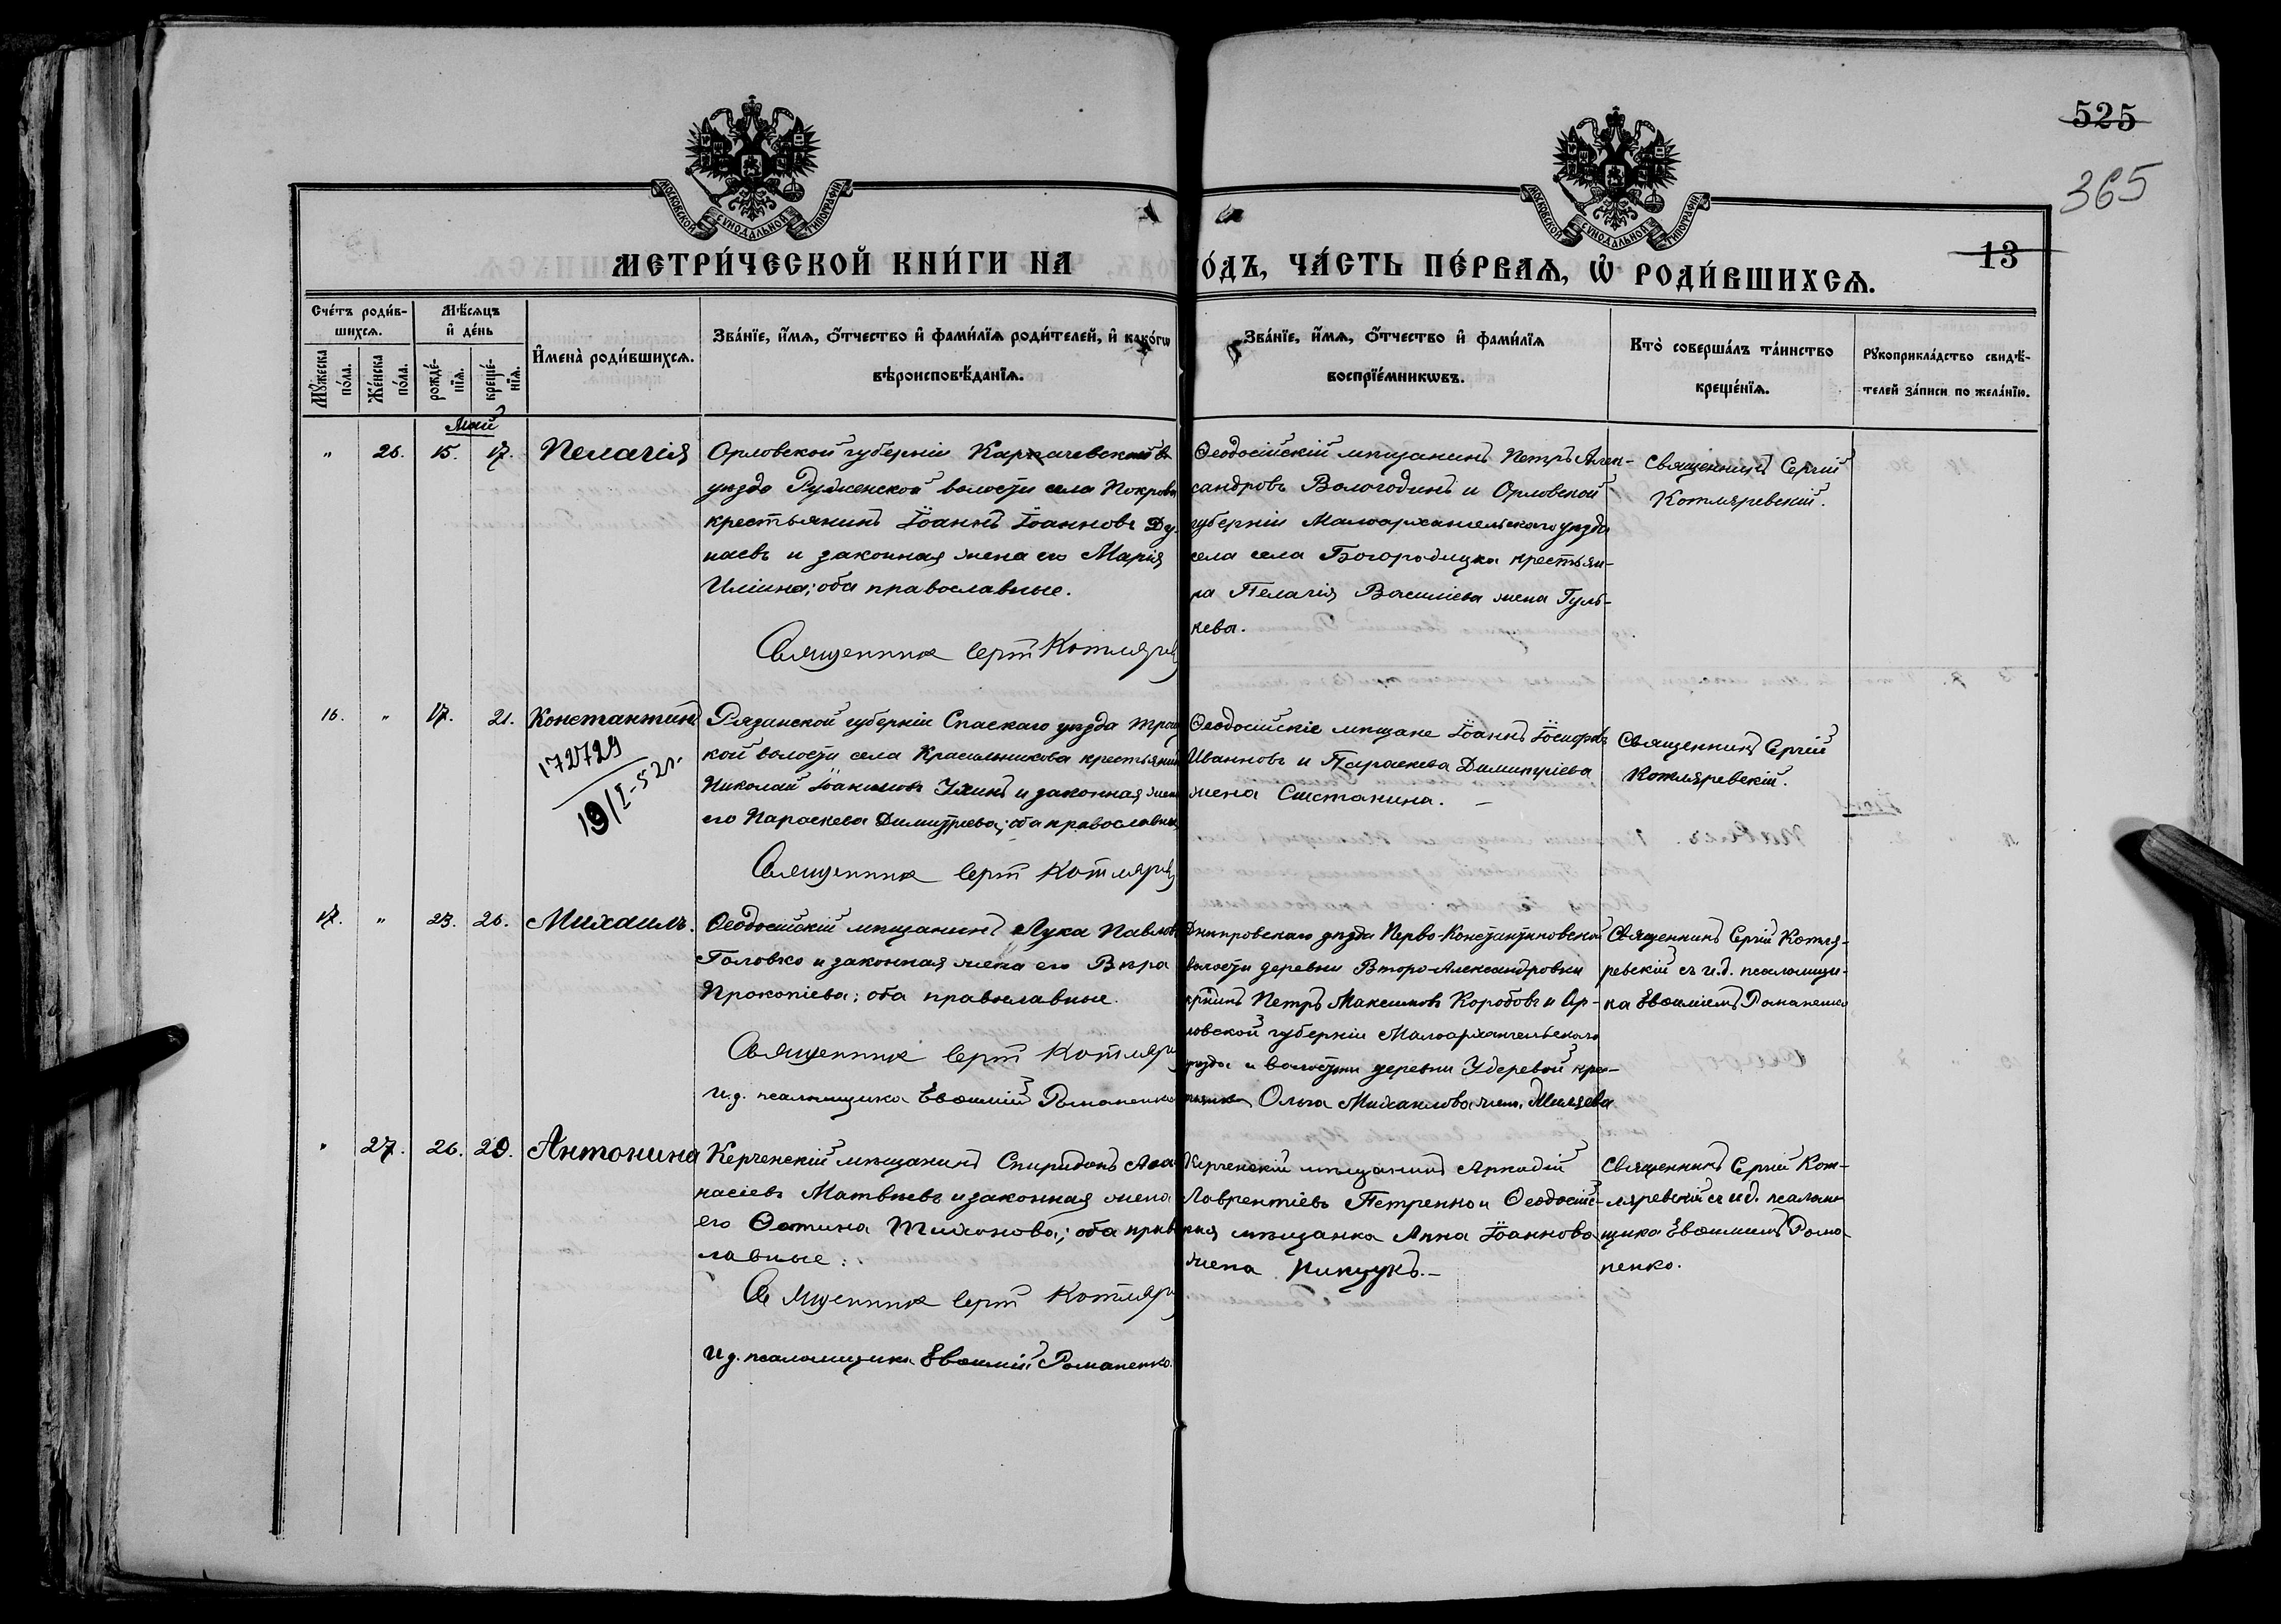 525
365
13
МОСКОВСКОЙ СУНОДАЛЬНОЙ ТИПОГРАФІИ
МОСКОВСКОЙ СУНОДАЛЬНОЙ ТИПОГРАФІИ
МЕТРИ́ЧЕСКОЙ КНИ́ГИ НА
О́ДЪ, ЧА́СТЬ ПЕ́РВАѦ, Ѡ҆ РОДИ́ВШИХСѦ.
Сче́тъ роди́в-
шихсѧ.
Мꙋ́жеска
по́ла.
Же́нска
по́ла.
Мѣ́сѧцъ
и҆ де́нь
рожде́-
нїѧ.
креще́-
нїѧ.
И҆мена̀ роди́вшихсѧ.
Зва́нїе, и҆́мѧ, ѻ҆́тчество и҆ фами́лїѧ роди́телей, и҆ како́гѡ
вѣроисповѣ́данїѧ.
Зва́нїе, и҆́мѧ, ѻ҆́тчество и҆ фами́лїѧ
воспрїе́мникѡвъ.
Кто̀ соверша́лъ та́инство
креще́нїѧ.
Рꙋкоприкла́дство свидѣ́-
телей за́писи по жела́нїю.
Май
" 26. 15. 17. Пелагія
Орловской губерніи Карачевскаго
уѣзда Руженской волости села Покрова
крестьянинъ Іоаннъ Іоанновъ Ду-
наевъ и законная жена его Марія
Иліина; оба православные.
Священникъ Сергій Котляревскій
Ѳеодосійскій мѣщанинъ Петръ Алек-
сандровъ Вологодинъ и Орловской
губерніи Малоархангельскаго уѣзда
села села Богородицка крестьян-
ка Пелагія Василіева жена Гуль-
кева.
Священникъ Сергій
Котляревскій.
16. " 17. 21. Константинъ
172729
19/I-52г.
Рязанской губерніи Спаскаго уѣзда Троиц
кой волости села Красильникова крестьянинъ
Николай Іоанновъ и законная жена
его Параскева Димитріева; оба православные
Священникъ Сергій Котляревскій
Ѳеодосійскіе мѣщане Іоаннъ
Ивановъ и Параскева Димитріева
жена
Священникъ Сергій
Котляревскій.
17. " 23. 26. Михаилъ.
Ѳеодосійскій мѣщанинъ Лука Павловъ
Головко и законная жена его Вѣра
Прокопіева; оба православные.
Священникъ Сергій Котляр
И.д. псаломщика Евѳимій Романенко
Днѣпровскаго уѣзда Перво-Константиновской
волости деревни Второ-Александровки
кр-нинъ Петръ Максимовъ Коробовъ и Ор-
ловской губерніи Малоархангельскаго
уѣзда и волости деревни Удеревой крес-
тьянка Ольга Михаилова жена
Священникъ Сергій Котля-
ревскій съ и.д. псаломщи-
ка Евѳиміемъ Романенко
" 27. 26. 29. Антонина
Керченскій мѣщанинъ Спиридонъ Аѳа-
насіевъ Матвѣевъ и законная жена
его Фотина Тихонова; оба право
лавные.
Священникъ Сергій Котляр
И.д. псаломщика Евѳимій Романенко.
Керченскій мѣщанинъ Аркадій
Лаврентіевъ Петренко и Ѳеодосійс-
кая мѣщанка Анна Іоаннова
жена Пинчукъ.
Священникъ Сергій Кот-
ляревскій съ и.д. псалом-
щика Евѳиміемъ Рома-
ненко.